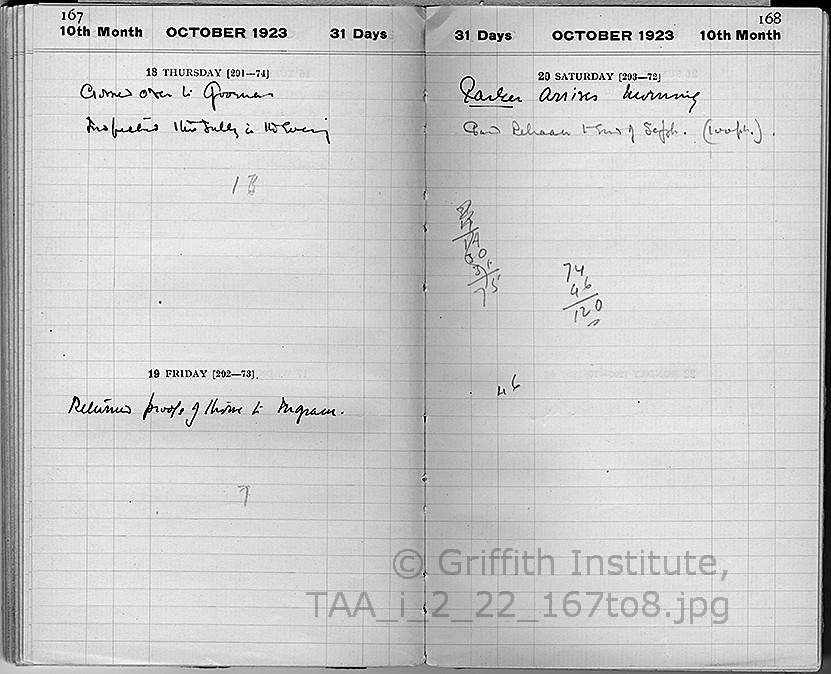 167
10th Month OCTOBER 1923 31 Days
18 THURSDAY [291—74]
Crossed over to Goornah
Inspected the Valley in the Evening
13
19 FRIDAY [292—73].
Returned proofs of thine to Ingram.
7
168
31 Days OCTOBER 1923 10th Month
20 SATURDAY [293—72]
arrives morning
to End of Sept. (100pt.).
14
60
75
74
46
120
46
© Griffith Institute,
TAA_i_2_22_167to8.jpg